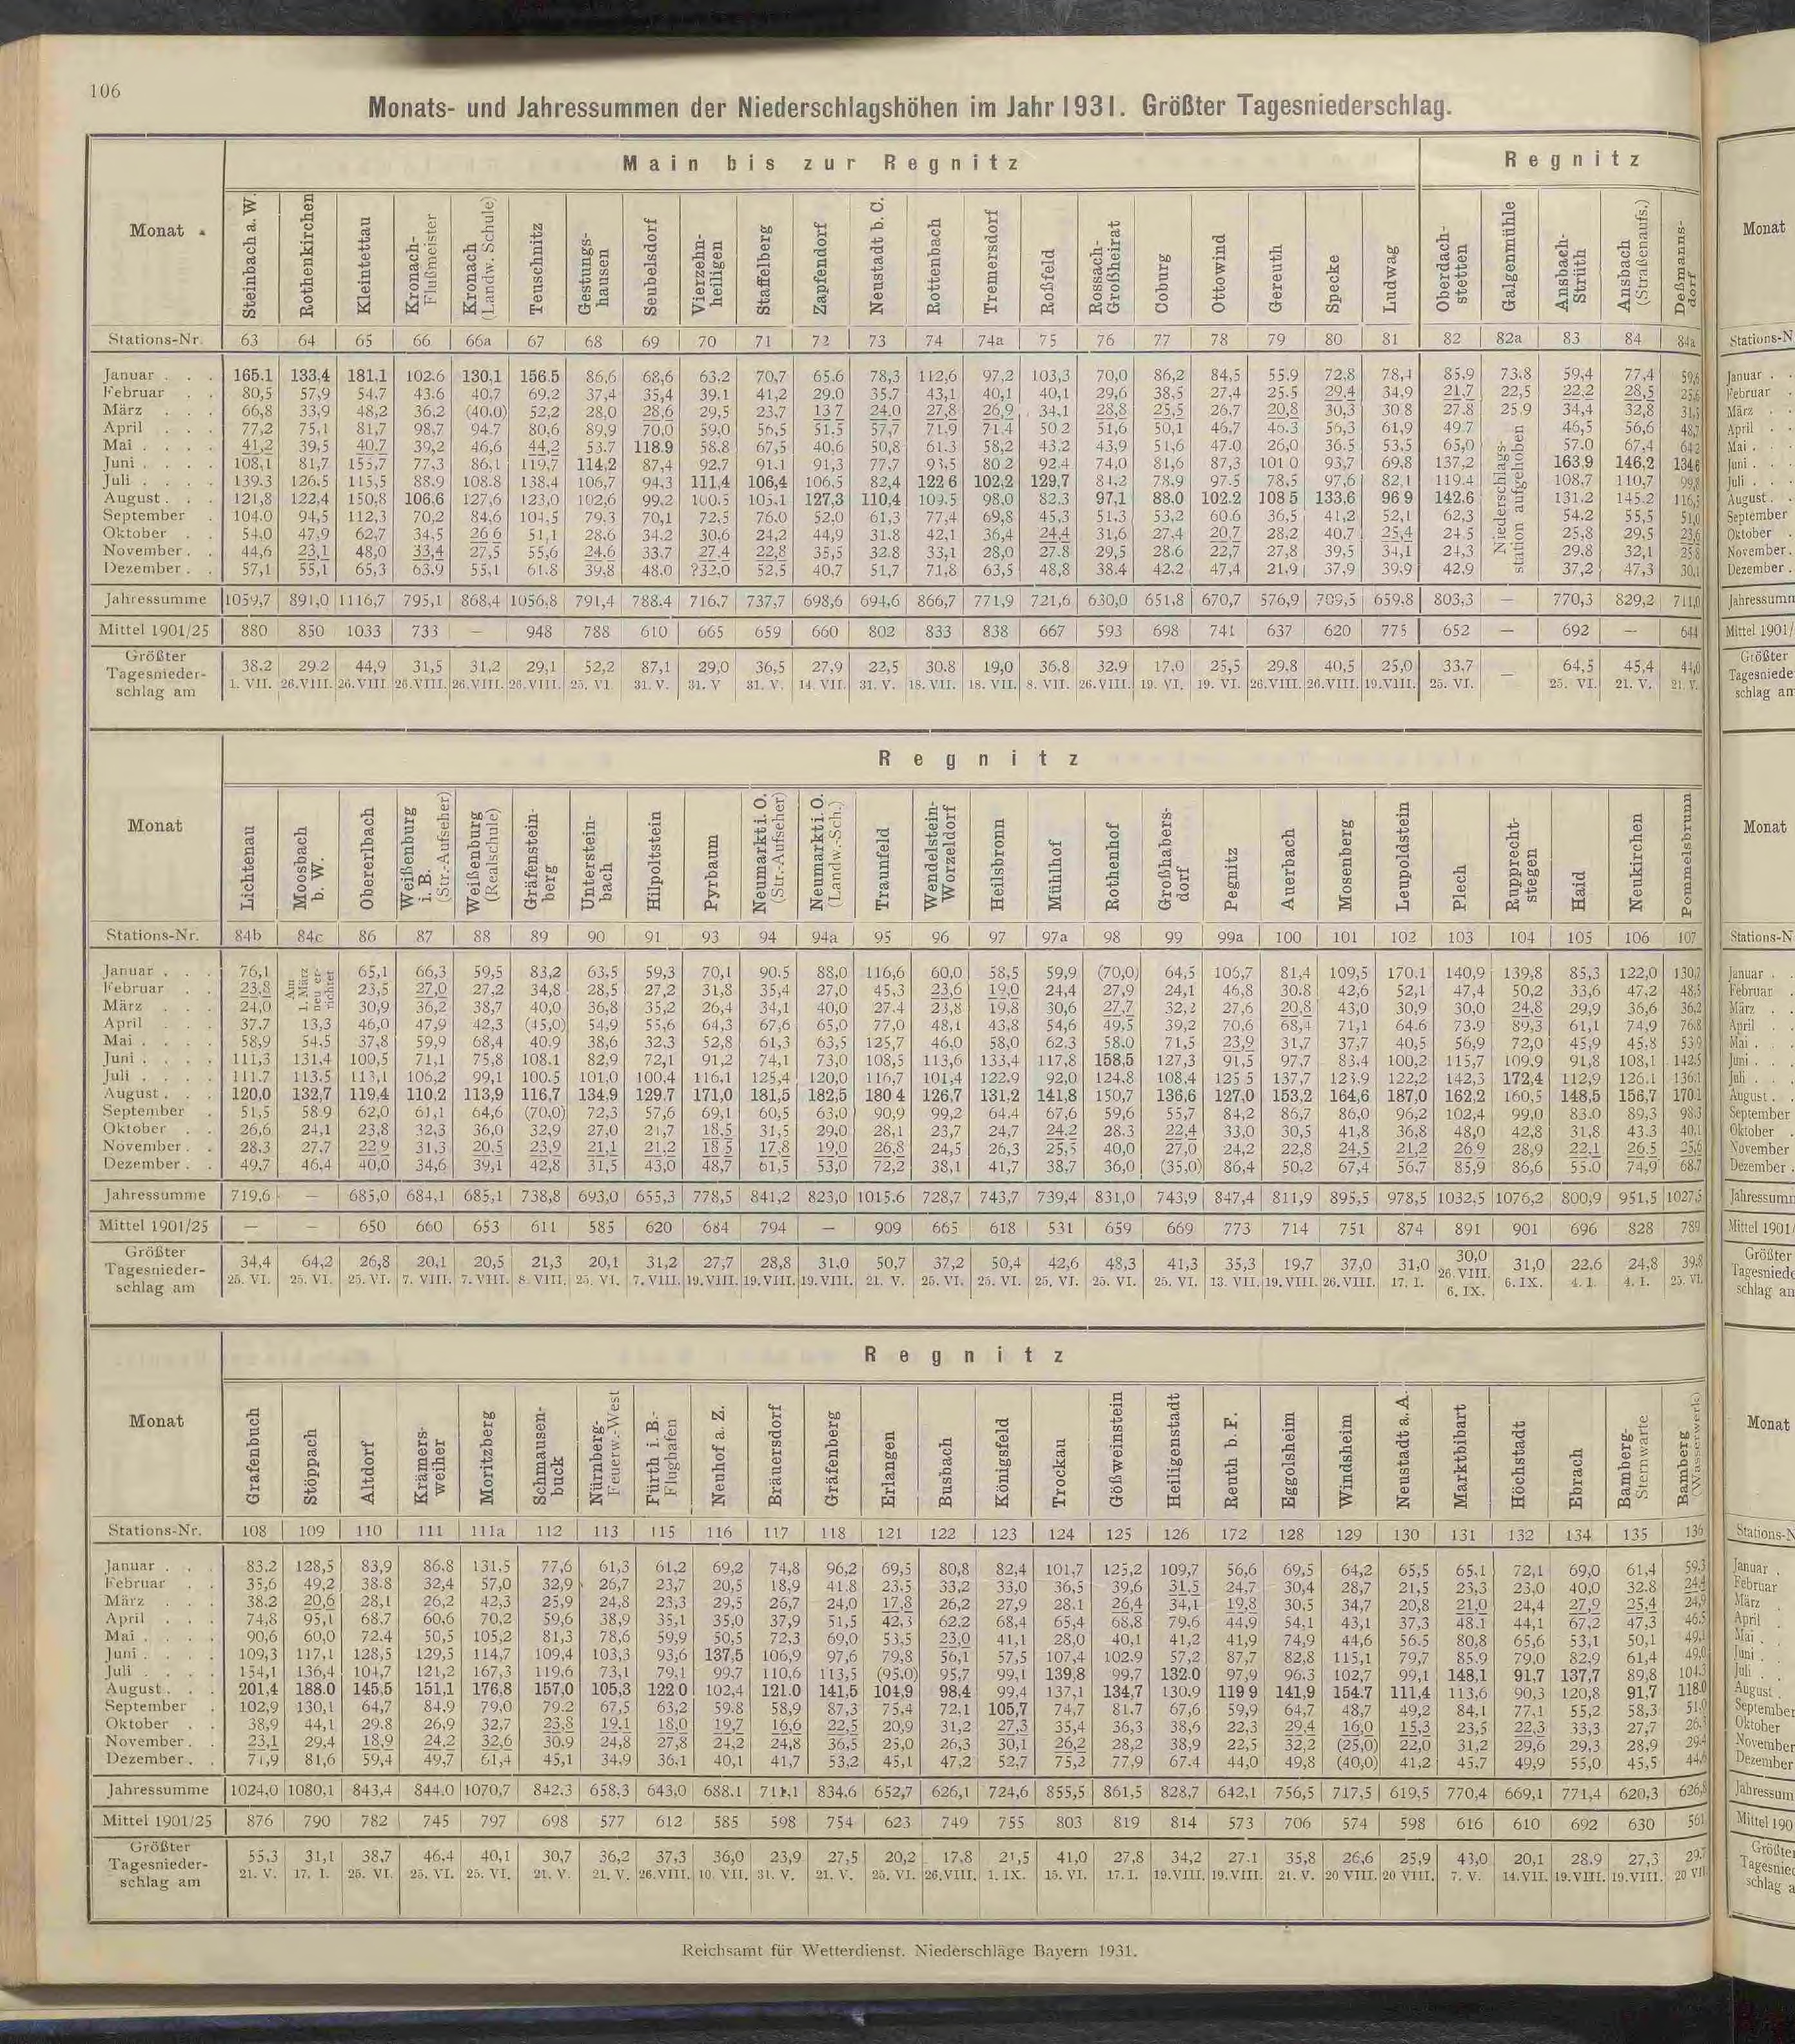 106
Monats- und Jahressummen der Niederschlagshöhen im Jahr 1931. Größter Tagesniederschlag.
Monat Main bis zur Regnitz Regnitz
Steinbach a. W. Rothenkirchen Kleintettau Kronach-Flußmeister Kronach (Landw. Schule) Teuschnitz Gestungshausen Seubelsdorf Vierzehnheiligen Staffelberg Zapfendorf Neustadt b. C. Rottenbach Tremersdorf Roßfeld Rossach-Großheirat Coburg Ottowind Gereuth Specke Ludwag Oberdachstetten Galgenmühle Ansbach-Strüth Ansbach (Straßenaufs.) Deßmannsdorf
Stations-Nr. 63 64 65 66 66a 67 68 69 70 71 72 73 74 74a 75 76 77 78 79 80 81 82 82a 83 84 84a
Januar 165.1 133.4 181.1 102.6 130,1 156.5 86,6 68,6 63.2 70,7 65.6 78,3 112,6 97,2 103,3 70,0 86,2 84,5 55.9 72,8 78,4 85.9 73.8 59,4 77,4 59,6
Februar 80,5 57,9 54.7 43.6 40.7 69.2 37,4 35,4 39.1 41,2 29.0 35.7 43,1 40,1 40,1 29,6 38,5 27,4 25.5 29.4 34.9 21,7 22,5 22,2 28,5 25,6
März 66,8 33,9 48,2 36,2 (40,0) 52,2 28,0 28,6 29,5 23,7 13 7 24.0 27,8 26,9 34,1 28,8 25,5 26,7 20,8 30,3 30 8 27.8 25 9 34,4 32,8 31,5
April 77,2 75,1 81,7 98,7 94.7 80,6 89,9 70,0 59,0 56,5 51.5 57,7 71,9 71.4 50.2 51,6 50,1 46,7 46.3 56,3 61,9 49.7 46,5 56,6 48,7
Mai 41,2 39,5 40.7 39,2 46,6 44,2 53.7 118.9 58.8 67,5 40.6 50,8 61.3 58,2 43.2 43,9 51,6 47.0 26,0 36.5 53.5 65,0 57.0 67,4 64 2
Juni 108,1 81,7 155,7 77,3 86,1 119,7 114,2 87,4 92.7 91.1 91,3 77,7 93,5 80 2 92.4 74,0 81,6 87,3 101 0 93,7 69.8 137,2 163,9 146,2 134,6
Juli 139.3 126.5 115,5 88.9 108.8 138.4 106,7 94,3 111,4 106,4 106,5 82,4 122 6 102,2 129,7 84,2 78,9 97.5 78,5 97,6 82,1 119.4 108,7 110,7 99,8
August 121,8 122,4 150,8 106,6 127,6 123,0 102,6 99,2 100.5 105.1 127,3 110,4 109.5 98.0 82.3 97,1 88.0 102.2 108 5 133,6 96 9 142.6 131.2 145.2 116,5
September 104.0 94,5 112,3 70,2 84,6 104,5 79.3 70,1 72,5 76.0 52.0 61,3 77,4 69,8 45,3 51,3 53,2 60.6 36,5 41,2 52,1 62,3 54.2 55,5 51,0
Oktober 54,0 47,9 62,7 34,5 26 6 51,1 28,6 34.2 30,6 24,2 44,9 31.8 42,1 36,4 24,4 31,6 27.4 20.7 28.2 40.7 25,4 24.5 25,8 29,5 23,6
November 44,6 23,1 48,0 33,4 27,5 55,6 24.6 33.7 27,4 22,8 35,5 32.8 33,1 28,0 27.8 29,5 28.6 22,7 27,8 39,5 34,1 24,3 29.8 32,1 25 8
Dezember 57,1 55,1 65,3 63.9 55,1 61.8 39,8 48.0 ?32,0 52,5 40,7 51,7 71,8 63,5 48,8 38.4 42.2 47,4 21,9 37,9 39,9 42.9 37,2 47,3 30,1
Niederschlagsstation aufgehoben
Jahressumme 1059,7 891,0 1116,7 795,1 868,4 1056,8 791,4 788.4 716,7 737,7 698,6 694,6 866,7 771,9 721,6 630,0 651,8 670,7 576,9 709,5 659.8 803,3 — 770,3 829,2 711,0
Mittel 1901/25 880 850 1033 733 — 948 788 610 665 659 660 802 833 838 667 593 698 741 637 620 775 652 — 692 — 644
Größter Tagesniederschlag am 38.2 29.2 44,9 31,5 31,2 29,1 52,2 87,1 29,0 36,5 27,9 22,5 30.8 19,0 36.8 32.9 17.0 25,5 29.8 40,5 25,0 33.7 — 64,5 45,4 44,0
1. VII. 26.VIII. 26.VIII. 26.VIII. 26.VIII. 26.VIII. 25. VI. 31. V. 31. V 31. V. 14. VII. 31. V. 18. VII. 18. VII. 8. VII. 26.VIII. 19. VI. 19. VI. 26.VIII. 26.VIII. 19.VIII. 25. VI. 25. VI. 21. V. 21. V.
Monat Regnitz
Lichtenau Moosbach b. W. Obererlbach Weißenburg i. B. (Str.-Aufseher) Weißenburg (Realschule) Gräfensteinberg Untersteinbach Hilpoltstein Pyrbaum Neumarkt i. O. (Str.-Aufseher) Neumarkt i. O. (Landw.-Sch.) Traunfeld Wendelstein-Worzeldorf Heilsbronn Mühlhof Rothenhof Großhabersdorf Pegnitz Auerbach Mosenberg Leupoldstein Plech Rupprechtstegen Haid Neukirchen Pommelsbrunn
Stations-Nr. 84b 84c 86 87 88 89 90 91 93 94 94a 95 96 97 97a 98 99 99a 100 101 102 103 104 105 106 107
Am 1. März neu errichtet
Januar 76,1 65,1 66,3 59,5 83,2 63,5 59,3 70,1 90.5 88,0 116,6 60,0 58,5 59,9 (70,0) 64,5 106,7 81,4 109,5 170.1 140,9 139,8 85,3 122,0 130,7
Februar 23,8 23,5 27,0 27,2 34,8 28,5 27,2 31,8 35,4 27,0 45,3 23,6 19,0 24,4 27,9 24,1 46,8 30.8 42,6 52,1 47,4 50,2 33,6 47,2 48,5
März 24,0 30,9 36,2 38,7 40,0 36,8 35,2 26,4 34,1 40,0 27.4 23,8 19.8 30,6 27,7 32,2 27,6 20,8 43,0 30,9 30,0 24,8 29,9 36,6 36,2
April 37.7 13,3 46,0 47,9 42,3 (45,0) 54,9 55,6 64,3 67,6 65,0 77,0 48,1 43,8 54,6 49,5 39,2 70,6 68,4 71,1 64.6 73.9 89,3 61,1 74,9 76.8
Mai 58,9 54.5 37,8 59,9 68,4 40.9 38,6 32.3 52,8 61,3 63,5 125,7 46.0 58,0 62.3 58.0 71,5 23,9 31,7 37,7 40,5 56,9 72,0 45,9 45,8 53 9
Juni 111,3 131.4 100,5 71,1 75,8 108.1 82,9 72,1 91,2 74,1 73,0 108,5 113,6 133,4 117,8 158,5 127,3 91,5 97,7 83.4 100,2 115,7 109,9 91,8 108,1 142,5
Juli 111.7 113.5 113,1 106,2 99,1 100.5 101,0 100.4 116.1 125,4 120,0 116,7 101,4 122.9 92,0 124.8 108.4 125 5 137,7 123.9 122,2 142,3 172,4 112,9 126.1 136,1
August 120,0 132,7 119,4 110.2 113,9 116,7 134.9 129.7 171,0 181,5 182,5 180 4 126,7 131.2 141,8 150,7 136,6 127,0 153,2 164,6 187,0 162,2 160,5 148,5 156,7 170.1
September 51,5 58.9 62,0 61,1 64,6 (70,0) 72,3 57,6 69,1 60,5 63,0 90,9 99,2 64.4 67,6 59,6 55,7 84,2 86,7 86,0 96,2 102,4 99.0 83.0 89,3 98,3
Oktober 26,6 24,1 23,8 32,3 36,0 32,9 27,0 21,7 18,5 31,5 29,0 28,1 23,7 24,7 24,2 28.3 22,4 33,0 30,5 41,8 36,8 48,0 42,8 31,8 43.3 40,1
November 28,3 27,7 22,9 31,3 20,5 23,9 21,1 21,2 18 5 17,8 19,0 26,8 24,5 26,3 25,5 40,0 27,0 24,2 22,8 24,5 21,2 26 9 28,9 22.1 26.5 25,6
Dezember 49,7 46.4 40,0 34,6 39,1 42,8 31,5 43,0 48,7 61,5 53,0 72,2 38,1 41,7 38,7 36,0 (35,0) 86,4 50,2 67,4 56.7 85,9 86,6 55.0 74,9 68.7
Jahressumme 719,6 — 685,0 684,1 685,1 738,8 693,0 655,3 778,5 841,2 823,0 1015.6 728,7 743,7 739,4 831,0 743,9 847,4 811,9 895,5 978,5 1032,5 1076,2 800,9 951,5 1027,5
Mittel 1901/25 — — 650 660 653 611 585 620 684 794 — 909 665 618 531 659 669 773 714 751 874 891 901 696 828 789
Größter Tagesniederschlag am 34,4 64,2 26,8 20,1 20,5 21,3 20,1 31,2 27,7 28,8 31,0 50,7 37,2 50,4 42,6 48,3 41,3 35,3 19,7 37,0 31,0 30,0 31,0 22,6 24,8 39,8
25. VI. 25. VI. 25. VI. 7. VIII. 7. VIII. 8. VIII. 25. VI. 7. VIII. 19.VIII. 19.VIII. 19.VIII. 21. V. 25. VI. 25. VI. 25. VI. 25. VI. 25. VI. 13. VII. 19.VIII. 26.VIII. 17. I. 26.VIII. 6. IX. 6. IX. 4. I. 4. I. 25. VI.
Monat Regnitz
Grafenbuch Stöppach Altdorf Krämersweiher Moritzberg Schmausenbuck Nürnberg-Feuerw.-West Fürth i. B.-Flughafen Neuhof a. Z. Bräuersdorf Gräfenberg Erlangen Busbach Königsfeld Trockau Gößweinstein Heiligenstadt Reuth b. F. Eggolsheim Windsheim Neustadt a. A. Marktbibart Höchstadt Ebrach Bamberg-Sternwarte Bamberg (Wasserwerk)
Stations-Nr. 108 109 110 111 111a 112 113 115 116 117 118 121 122 123 124 125 126 172 128 129 130 131 132 134 135 136
Januar 83.2 128,5 83,9 86.8 131,5 77,6 61,3 61,2 69,2 74,8 96,2 69,5 80,8 82,4 101,7 125,2 109,7 56,6 69,5 64,2 65,5 65.1 72,1 69,0 61,4 59,3
Februar 35,6 49,2 38.8 32,4 57,0 32,9 26,7 23,7 20,5 18,9 41.8 23.5 33,2 33,0 36,5 39,6 31,5 24,7 30,4 28,7 21,5 23,3 23,0 40,0 32.8
März 38.2 20,6 28,1 26,2 42,3 25,9 24,8 23,3 29,5 26,7 24,0 17,8 26,2 27,9 28.1 26,4 34,1 19,8 30,5 34,7 20,8 21,0 24,4 27,9 25,4 24,9
April 74,8 95,1 68.7 60,6 70.2 59,6 38,9 35,1 35,0 37,9 51,5 42,3 62.2 68,4 65,4 68,8 79,6 44,9 54,1 43,1 37,3 48.1 44,1 67,2 47,3 46,5
Mai 90,6 60,0 72.4 50,5 105,2 81,3 78,6 59,9 50,5 72,3 69,0 53.5 23,0 41,1 28,0 40,1 41,2 41,9 74,9 44,6 56.5 80,8 65,6 53,1 50,1 49,1
Juni 109,3 117,1 128,5 129,5 114,7 109,4 103,3 93,6 137,5 106,9 97,6 79,8 56,1 57,5 107,4 102.9 57,2 87,7 82,8 115,1 79,7 85.9 79,0 82,9 61,4 49,0
Juli 154,1 136,4 104,7 121,2 167,3 119.6 73,1 79,1 99.7 110,6 113,5 (95.0) 95,7 99,1 139,8 99,7 132.0 97,9 96.3 102,7 99,1 148,1 91,7 137,7 89,8 104,3
August 201,4 188.0 145,5 151,1 176,8 157,0 105,3 122 0 102,4 121.0 141,5 104,9 98,4 99.4 137,1 134,7 130.9 119 9 141,9 154.7 111,4 113,6 90,3 120,8 91,7 118.0
September 102,9 130,1 64,7 84.9 79,0 79.2 67,5 63,2 59.8 58,9 87,3 75.4 72.1 105,7 74,7 81.7 67,6 59,9 64,7 48,7 49,2 84,1 77,1 55,2 58,3 51,0
Oktober 38,9 44,1 29.8 26,9 32,7 23,8 19,1 18,0 19,7 16,6 22,5 20,9 31,2 27,3 35,4 36,3 38,6 22,3 29,4 16,0 15,3 23,5 22,3 33,3 27,7
November 23,1 29,4 18,9 24,2 32,6 30.9 24,8 27,8 24,2 24,8 36,5 25,0 26,3 30,1 26,2 28,2 38,9 22,5 32,2 (25,0) 22,0 31,2 29,6 29,3 28,9 29,4
Dezember 71,9 81,6 59,4 49,7 61,4 45,1 34.9 36,1 40,1 41,7 53,2 45,1 47,2 52,7 75,2 77,9 67.4 44,0 49,8 (40,0) 41,2 45,7 49,9 55,0 45,5 44,6
Jahressumme 1024,0 1080,1 843,4 844.0 1070,7 842,3 658,3 643,0 688.1 711,1 834,6 652,7 626,1 724,6 855,5 861,5 828,7 642,1 756,5 717,5 619,5 770,4 669,1 771,4 620,3 626,8
Mittel 1901/25 876 790 782 745 797 698 577 612 585 598 754 623 749 755 803 819 814 573 706 574 598 616 610 692 630 561
Größter Tagesniederschlag am 55,3 31,1 38,7 46.4 40,1 30,7 36,2 37,3 36,0 23,9 27,5 20,2 17.8 21,5 41,0 27,8 34,2 27.1 35,8 26,6 25,9 43,0 20,1 28.9 27,3 29,7
21. V. 17. I. 25. VI. 25. VI. 25. VI. 21. V. 21. V. 26.VIII. 10. VII. 31. V. 21. V. 25. VI. 26.VIII. 1. IX. 15. VI. 17. I. 19.VIII. 19.VIII. 21. V. 20 VIII. 20 VIII. 7. V. 14.VII. 19.VIII. 19.VIII.
Reichsamt für Wetterdienst. Niederschläge Bayern 1931.